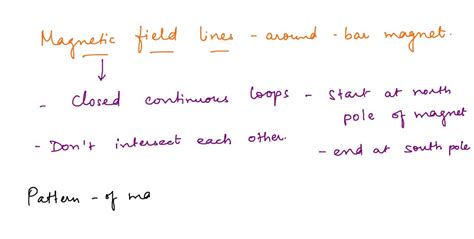 Magnetic field lines - around - bar magnet.
- Closed continuous loops - start at north
pole of magnet
- Don't intersect each other. - end at south pole
Pattern - of ma